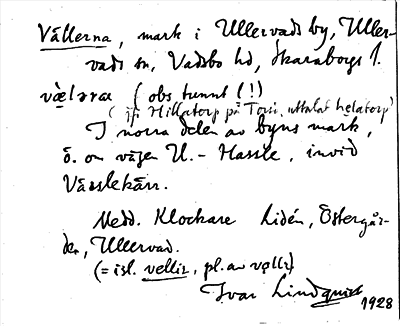 Vällerna, mark i Ullervads by, Uller-
vads sn, Vadsbo hd, Skaraborgs l.
vœ̀lәra ( obs tunnt l!)
(jfr Hillatorp på Torsö, uttalat helatorp)
I norra delen av byns mark,
ö. om vägen U.- Hassle, invid
Vässlekärr.
Medd. Klockare Lidén, Östergår-
den, Ullervad.
(= isl. vellir, pl. av vǫllr)
Ivar Lindquist
1928